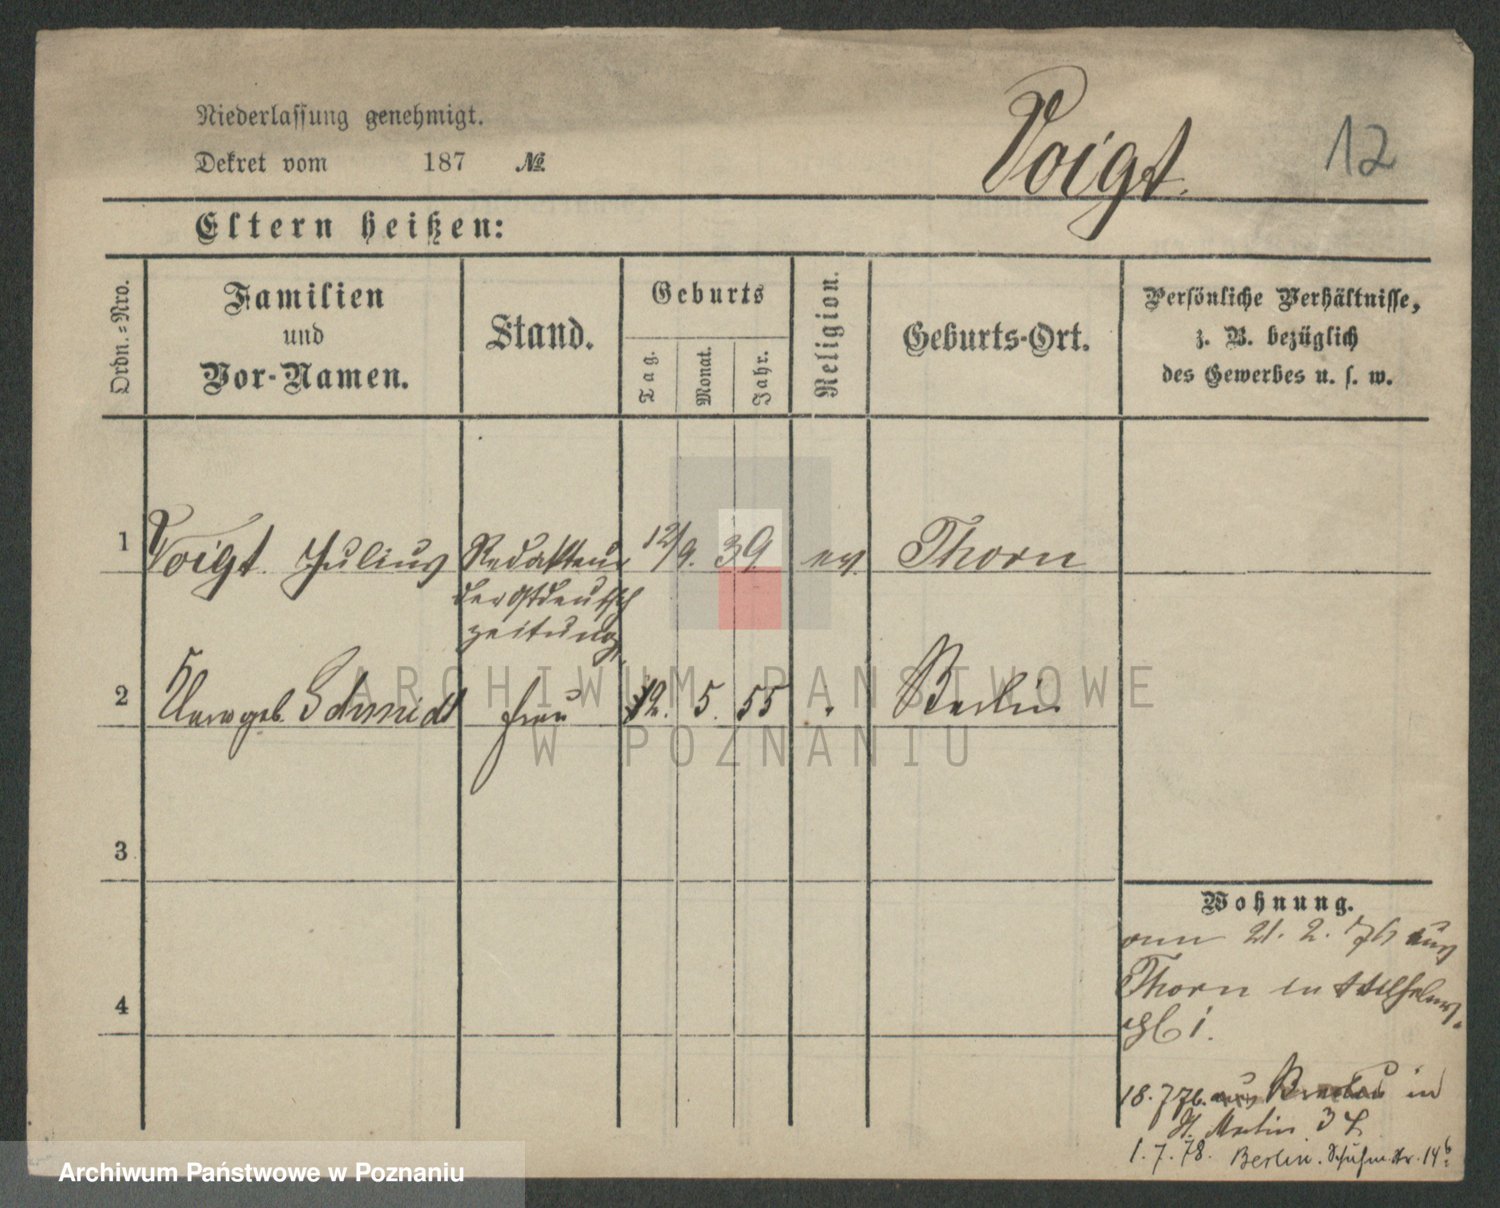 Niederlassung genehmigt.
Dekret vom 187 №
Voigt.
12
Eltern heißen:
Ordn.-Nro.
Familien
und
Vor-Namen.
Stand.
Geburts
Tag.
Monat.
Jahr.
Religion.
Geburts-Ort.
Persönliche Verhältnisse,
z. B. bezüglich
des Gewerbes u. s. w.
1 Voigt Julius Redakteur 12/9. 39 ev. Thorn
der Ostdeutsch
Zeitung
2 geb. Schmidt Frau 12. 5. 55 Berlin
3
4
Wohnung.
21. 2. 76 aus
Thorn in Wilhelms-
1.
18. 7 76. aus Breslau in
St. Martin 34
1. 7. 78. Berlin. 14
ARCHIWUM PAŃSTWOWE
W POZNANIU
Archiwum Państwowe w Poznaniu